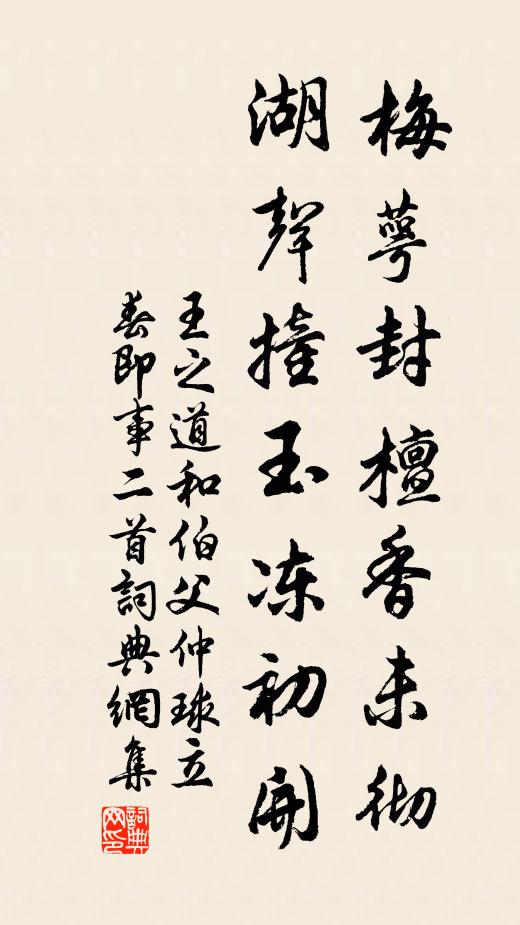 梅萼封檀香未彻
湖聲撞玉冻初開
王之道和伯父仲球立
春即事二首詞典網集
詞典网印